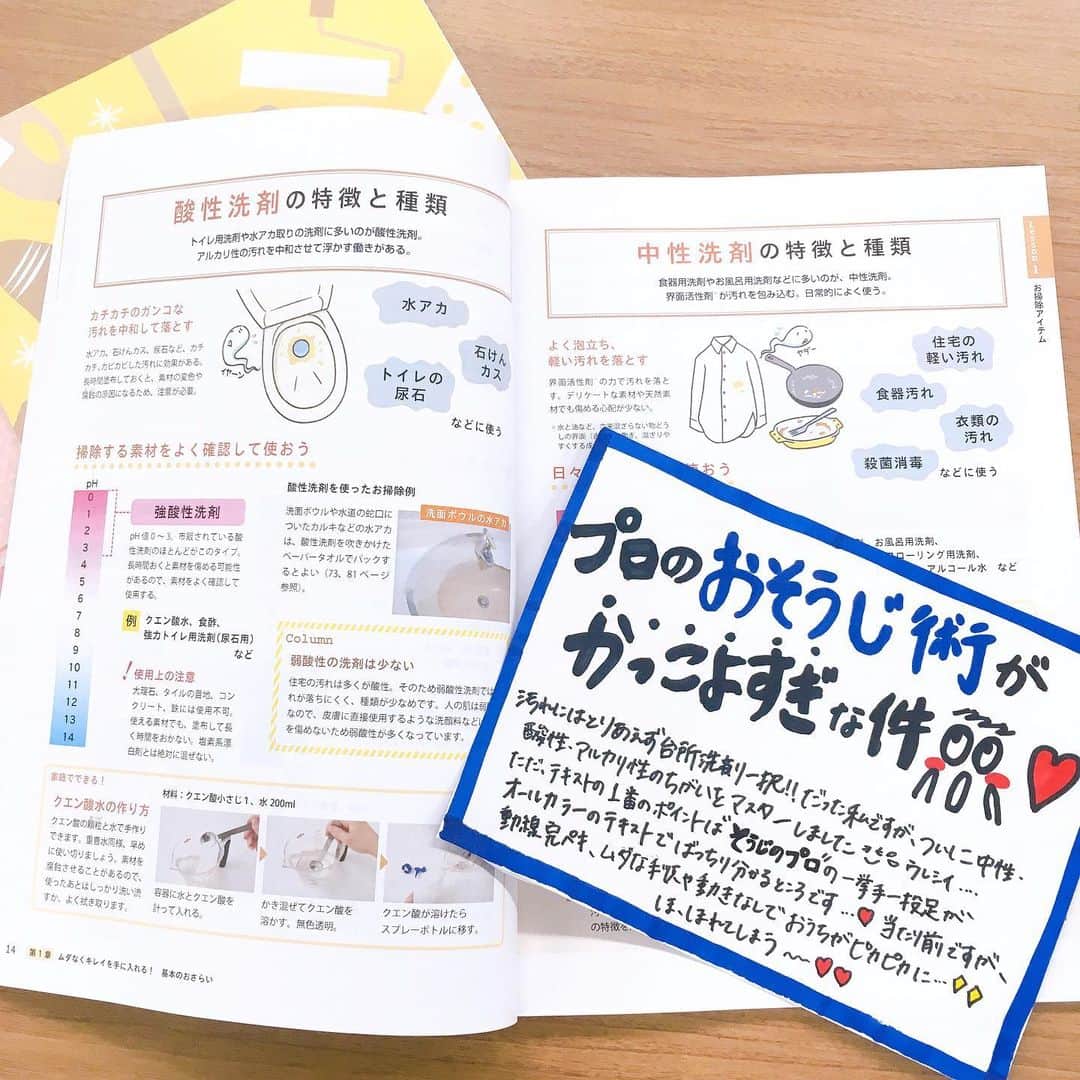 酸性洗剤の特徴と種類
トイレ用洗剤や水アカ取りの洗剤に多いのが酸性洗剤。
アルカリ性の汚れを中和させて浮かす働きがある。
カチカチのガンコな
汚れを中和して落とす
水アカ、石けんカス、尿石など、カチ
カチ、カピカピした汚れに効果がある。
長時間塗布しておくと、素材の変色や
腐蝕の原因になるため、注意が必要。
イヤ〜ン
水アカ
石けん
カス
トイレの
尿石
などに使う
掃除する素材をよく確認して使おう
pH
0
1
2
3
4
5
6
7
8
9
10
11
12
13
14
強酸性洗剤
pH値0〜3。市販されている酸
性洗剤のほとんどがこのタイプ。
長時間おくと素材を傷める可能性
があるので、素材をよく確認して
使用する。
例 クエン酸水、食酢、
強力トイレ用洗剤(尿石用)
など
使用上の注意
大理石、タイルの目地、コン
クリート、鉄には使用不可。
使える素材でも、塗布して長
く時間をおかない。塩素系漂
白剤とは絶対に混ぜない。
酸性洗剤を使ったお掃除例
洗面ボウルや水道の蛇口に
ついたカルキなどの水アカ
は、酸性洗剤を吹きかけた
ペーパータオルでパックする
とよい(73、81ページ
参照)。
洗面ボウルの水アカ
Column
弱酸性の洗剤は少ない
住宅の汚れは多くが酸性。そのため弱酸性洗剤では
れが落ちにくく、種類が少なめです。人の肌は弱
なので、皮膚に直接使用するような洗顔料など
を傷めないため弱酸性が多くなっています。
家庭でできる!
クエン酸水の作り方
クエン酸の顆粒と水で手作り
できます。重曹水同様、早め
に使い切りましょう。素材を
腐蝕させることがあるので、
使ったあとはしっかり洗い流
すか、よく拭き取ります。
材料:クエン酸小さじ1、水200ml
容器に水とクエン酸を
計って入れる。
かき混ぜてクエン酸を
溶かす。無色透明。
クエン酸が溶けたら
スプレーボトルに移す。
14 第1章 ムダなくキレイを手に入れる! 基本のおさらい
中性洗剤の特徴と種類
食器用洗剤やお風呂用洗剤などに多いのが、中性洗剤。
界面活性剤*が汚れを包み込む。日常的によく使う。
Lesson 1
お掃除アイテム
よく泡立ち、
軽い汚れを落とす
界面活性剤*の力で汚れを落と
す。デリケートな素材や天然素
材でも傷める心配が少ない。
ヤダ〜
住宅の
軽い汚れ
食器汚れ
衣類の
汚れ
殺菌消毒
などに使う
日々
使おう
お風呂用洗剤、
ローリング用洗剤、
アルコール水 など
の特徴を
プロのおそうじ術が
かっこよすぎな件
汚れにはとりあえず台所洗剤一択!!だった私ですが、ついに中性、
酸性、アルカリ性のちがいをマスターしましたウレシイ....
ただ、テキストの1番のポイントは"そうじのプロ"の一挙手一投足が、
オールカラーのテキストでばっちり分かるところです...♥当たり前ですが、
動線完ペキ、ムダな手順や動きなしでおうちがピカピカに...
ほ、ほれてしまう〜〜♥♥